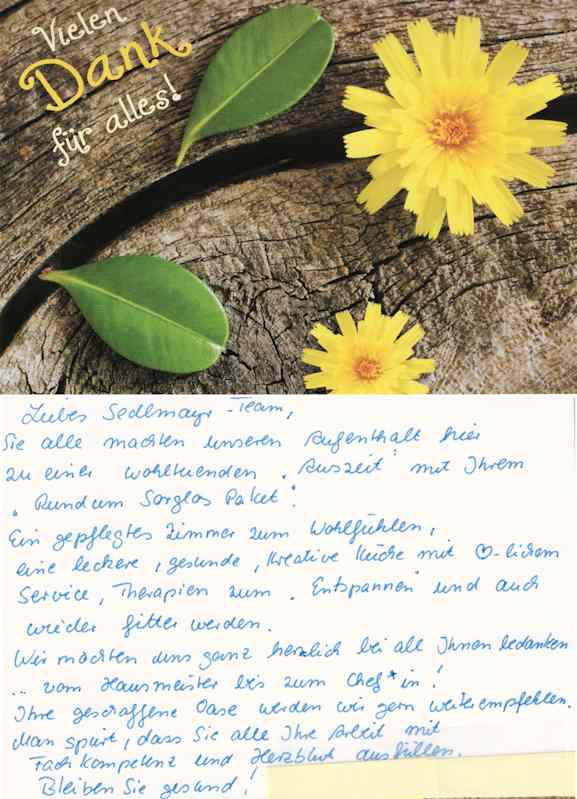 Vielen
Dank
für alles!
Liebes Sedlmayr-Team,
Sie alle machten unseren Aufenthalt hier
zu einer wohltuenden „Auszeit" mit Ihrem
„Rundum Sorglos Paket".
Ein gepflegtes Zimmer zum Wohlfühlen,
eine leckere, gesunde, kreative Küche mit ♡-lichem
Service, Therapien zum „Entspannen" und auch
wieder fitter werden.
Wir möchten uns ganz herzlich bei all Ihnen bedanken
... vom Hausmeister bis zum Chef*in!
Ihre geschaffene Oase werden wir gern weiterempfehlen.
Man spürt, dass Sie alle Ihre Arbeit mit
Fachkompetenz und Herzblut ausfüllen.
Bleiben Sie gesund!